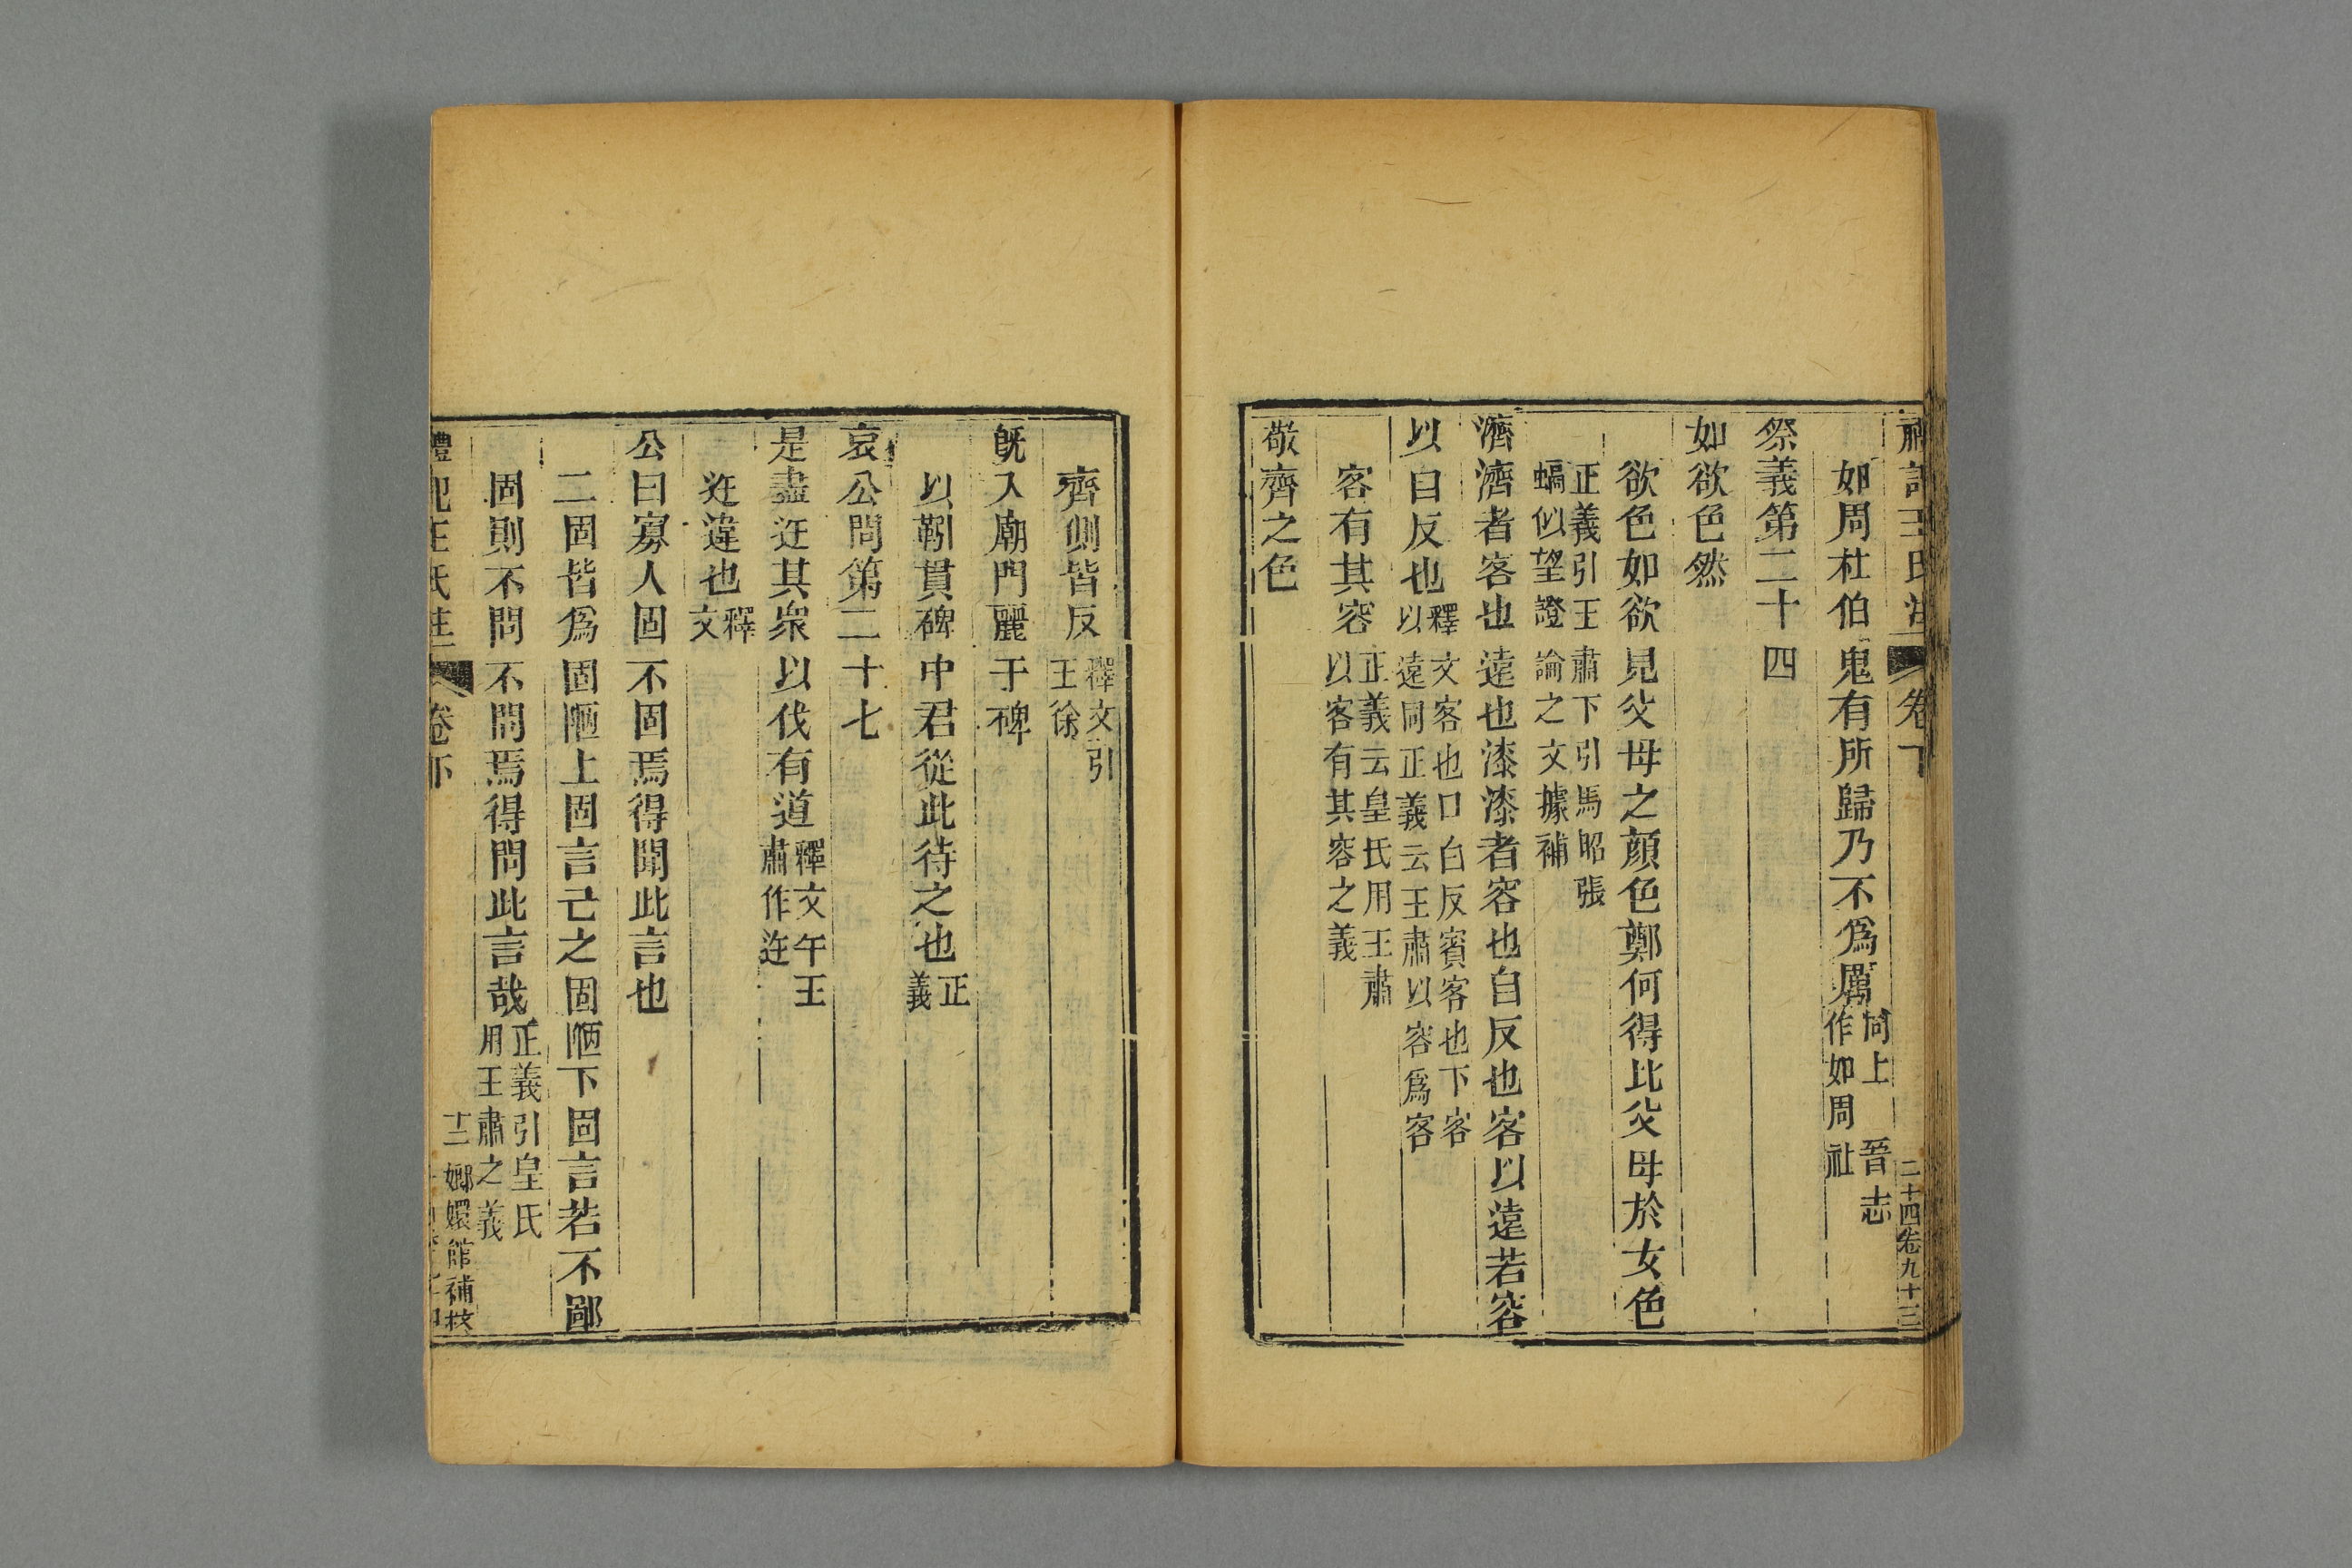 禮記王氏注 卷下 二十四卷九十三
如周杜伯鬼有所歸乃不爲厲同上 晉志作如周社
祭義第二十四
如欲色然
欲色如欲見父母之顔色鄭何得比父母於女色
正義引王肅下引馬昭張
蝠似望證論之文據補
濟濟者客也遠也漆漆者容也自反也客以遠若容
以自反也釋文客也口白反賓客也下客
以遠同正義云王肅以容爲客
客有其容正義云皇氏用王肅
以客有其容之義
敬齊之色
齊側皆反釋文引王徐
旣入廟門麗于碑
以靷貫碑中君從此待之也正義
哀公問第二十七
是盡迕其衆以伐有道釋文午王肅作迕
迕違也釋文
公曰寡人固不固焉得聞此言也
二固皆爲固陋上固言己之固陋下固言若不鄙
固則不問不問焉得問此言哉正義引皇氏用王肅之義
禮記王氏注 卷下 十二 嫏嬛館補校